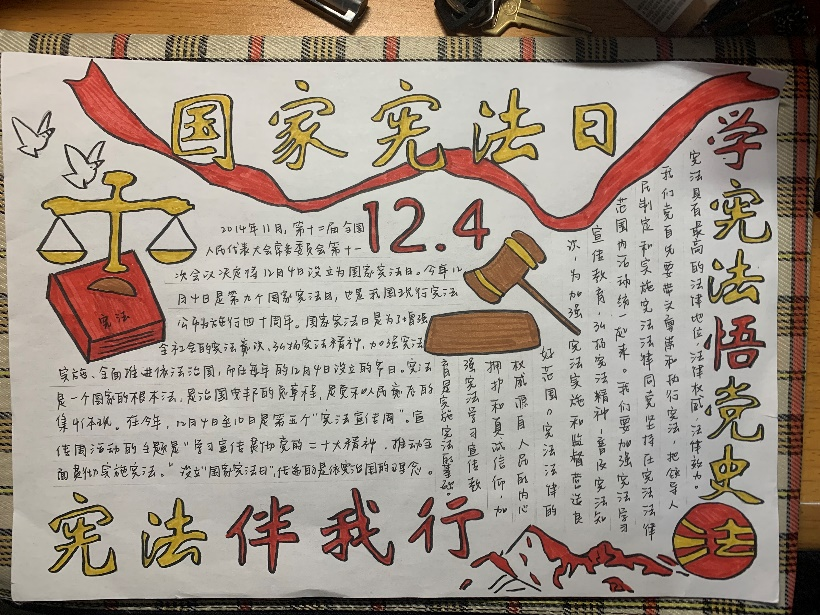 国家宪法日
12.4
学宪法悟党史
2014年11月，第十二届全国
人民代表大会常务委员会第十一
次会议决定将12月4日设立为国家宪法日。今年12
月4日是第九个国家宪法日，也是我国现行宪法
公布施行四十周年。国家宪法日是为了增强
全社会的宪法意识、弘扬宪法精神、加强宪法
实施、全面推进依法治国，而在每年的12月4日设立的节日。宪法
是一个国家的根本法，是治国安邦的总章程，是党和人民意志的
集中体现。在今年，12月4日至10日是第五个“宪法宣传周”。宣
传周活动的主题是“学习宣传贯彻党的二十大精神，推动全
面贯彻实施宪法。”设立“国家宪法日”，传递的是依宪治国的理念。
宪法具有最高的法律地位、法律权威、法律效力。
我们党首先要带头尊崇和执行宪法，把领导人
民制定和实施宪法法律同党坚持在宪法法律
范围内活动统一起来。我们要加强宪法学习
宣传教育，弘扬宪法精神、普及宪法知
识，为加强宪法实施和监督营造良
好范围。宪法法律的
权威源自人民的内心
拥护和真诚信仰，加
强宪法学习宣传教
育是实施宪法的基础。
宪法
宪法伴我行
法